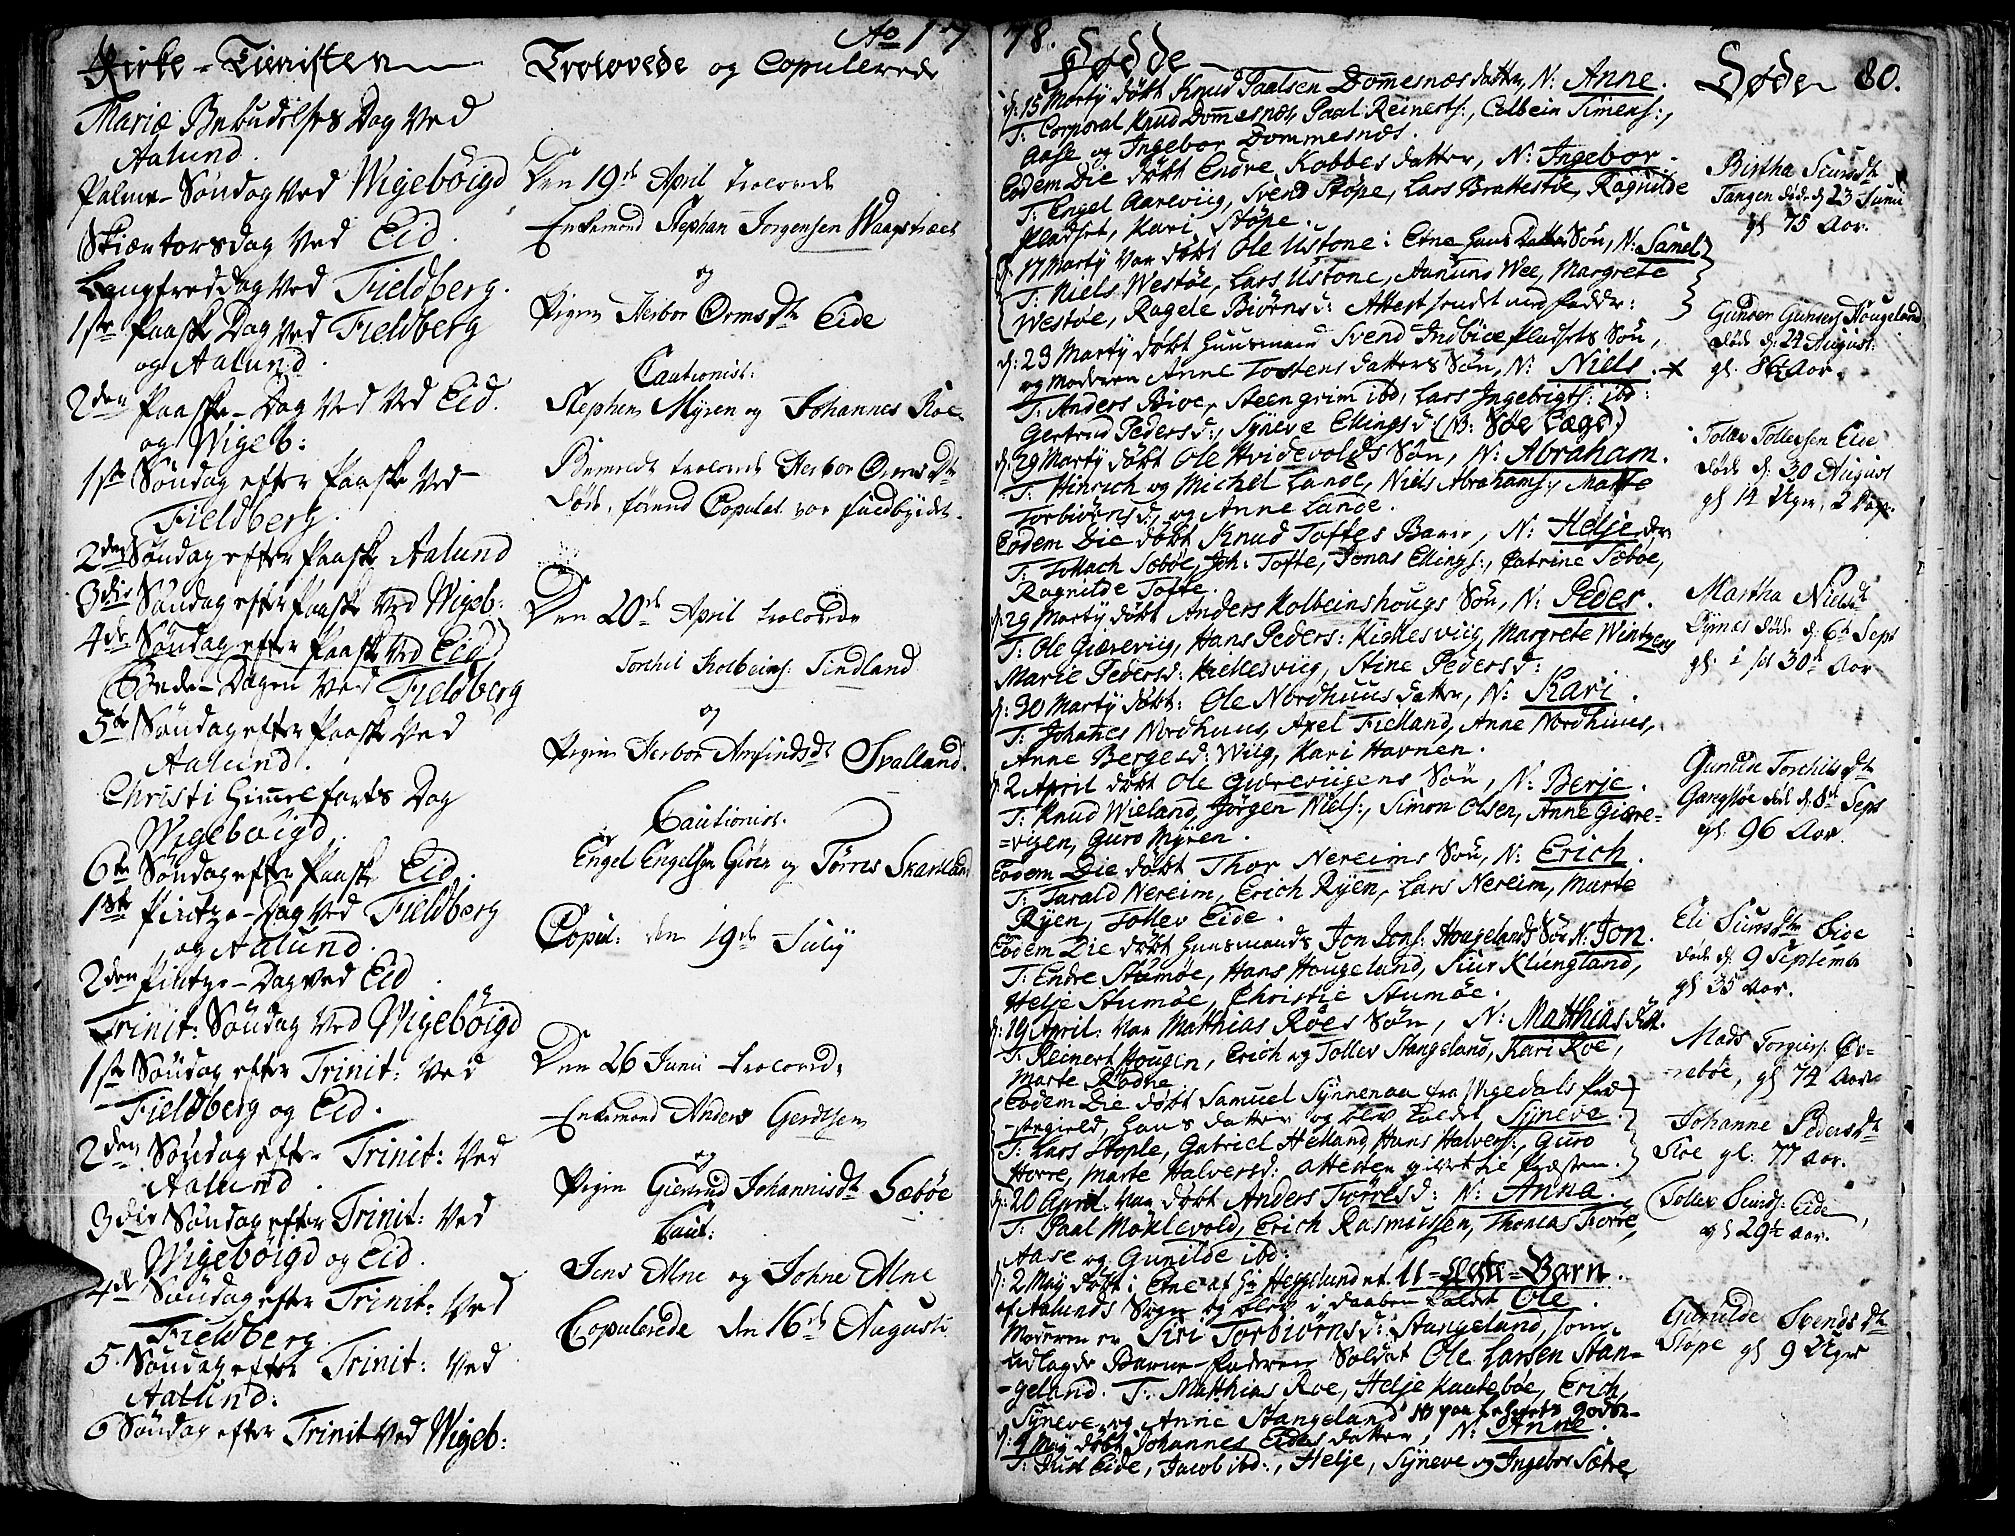 Ao 1778.
Kirke-Tienisten
Mariæ Bebudelses Dag Ved
Aalund.
Palme-Søndag Ved Wigebøigd
Skiærtorsdag Ved Eid.
Langfreddag Ved Fieldberg.
1ste Paaske Dag Ved Fieldberg
og Aalund.
2den Paaske-Dag Ved Ved Eid.
og Wigeb:
1ste Søndag efter Paaske Ved
Fieldberg.
2den Søndag efter Paaske Aalund
3die Søndag efter Paaske Ved Wigeb:
4de Søndag efter Paaske Ved Eid
Bønde-Dagen Ved Fieldberg
5te Søndag efter Paaske Ved
Aalund.
Christi Himmelfarts Dag
Wigebøigd.
6te Søndag efter Paaske Eid.
1ste Pintze-Dag Ved Fieldberg
og Aalund.
2den Pintze-Dag Ved Eid
Trinit: Søndag Ved Wigebøigd
1ste Søndag efter Trinit: Ved
Fieldberg og Eid.
2den Søndag efter Trinit: Ved
Aalund.
3die Søndag efter Trinit: Ved
Wigebøigd og Eid.
4de Søndag efter Trinit: Ved
Fieldberg.
5. Søndag efter Trinit: Ved
Aalund.
6 Søndag efter Trinit Ved Wigeb:
Trolovede og Copulerede
Den 19de April trolovede
Enkemand Stephan Jorgensen Waagstræet
og
Pigen Herbor Ormsdtr Eide
Cautionist:
Stephen Myren og Johannes Roe
Bemeldte trolovede Herbor Ormsdtr
døde, førend Copulat. var fuldbyrdet.
Den 20de April trolovede
Torchel Kolbeins: Tindland
og
Pigen Herbor Amfindsdt Svalland.
Cautionist.
Engel Engelsen Giøen og Tørres Skartland
Copul: den 19de July
Den 26 Junii trolovede
Enkemand Anders Gerdtsen
og
Pigen Giertrud Johannisdtr Sæbøe
Caut:
Jens Alne og Johne Alne
Copulerede den 16de Augusti
Fødde
d: 15 Marty døbt Knud Paalsen Dommesnæs datter, N: Anne.
T: Corporal Knud Dommesnæs, Paal Reinerts:, Colbein Simens:,
Aase og Ingebor Dommesnæs.
Eodem Die døbt Endre Kobbes datter, N: Ingebor.
T: Engel Aareviig, Svend Støpe, Lars Brattestøe, Ragnilde
Pladset, Kari Støpe.
d: 17 Marty Var døbt Ole Ustone i Etne hans Datter Søn, N: Samel
T: Niels Westøe, Lars Ustone, Aanuns Wee, Margrete
Westøe, Ragele Biørnsd: Attest sendet med fadder:
d: 23 Marty døbt Huusmand Svend Indbioe Pladsets Søn,
og Moderen Anne Tostens datters Søn, N: Niels.
T: Anders Bioe, Steengrim ibd, Lars Ingebrigts: ibd:
Gertrud Pedersd:, Syneve Ellingsd: (NB: Søe Lægd)
d: 29 Marty døbt Ole Hvidevolds Søn, N: Abraham.
T: Hinrich og Michel Lande, Niels Abrahams: Matte
Torbiørnsd:, og Anne Lande.
Eodem Die døbt Knud Toftes Barn, N: Helje
T: Tollach Sæbøe, Joh: Tofte, Jonas Ellings:, Catrine Sæbøe,
Ragnilde Tofte.
d: 29 Marty døbt Anders Kolbeinshougs Søn, N: Peder.
T: Ole Giæreviig, Hans Peders: Kiellesviig, Margrete Wintzen
Marie Pedersd: Kiellesviig, Stine Pedersd:
d: 30 Marty døbt: Ole Nordhuus datter, N: Kari.
T: Johanes Nordhuus, Axel Fielland, Anne Nordhuus,
Anne Bergesd: Wiig, Kari Havnen.
d: 2 April døbt Ole Giæreviigens Søn, N: Berje.
T: Knud Wieland, Jørgen Niels:, Simon Olsen, Anne Giære=
=vigen, Guro Myren.
Eodem Die døbt Thor Nereims Søn, N: Erich.
T: Tarald Nereim, Erich Ryen, Lars Nereim, Marte
Ryen, Tollev Eide.
Eodem Die døbt Huusmands Jon Jons: Hougelands Søn N: Jon.
T: Endre Stumøe, Hans Hougeland, Siur Klungland,
Helje Stumøe, Christie Stumøe.
d: 19 April: Var Matthias Røes Søn, N: Matthias døbt.
T: Reinert Hougen, Erich og Tollev Stangeland, Kari Roe,
Marte Rødne
Eodem Die døbt Samuel Synnenaa fra Wigedals Præ=
=stegield, hans datter og blev kaldet Syneve.
T: Lars Stople, Gabriel Helland, Hans Halvers:, Guro
Horre, Marte Halversd: Attesten givet
d: 20 April Var døbt Anders Førres d: N: Anna.
T: Paal Møklevold, Erich Rasmussen, Thomas Førre,
Aase og Gunilde ibd:
d: 2 May døbt i Etne af Hr Heggelund et U-ægte-Barn.
af Aalunds Sogn og blev i daaben kaldet Ole.
Moderen er Siri Torbiørnsd: Stangeland, som
udlagde Barne-faderen Soldat Ole Larsen Stan=
=geland. T: Matthias Roe, Helje Kaatebøe, Erich,
Syneve og Anne Stangeland
d: 4 May døbt Johannes Eides datter, N: Anne.
T: Just Eide, Jacob ibd:, Helje, Syneve og Ingebor Sætre
Døde 80.
Birtha Siursdt
Tangen døde d: 23 Junii
gl 75 Aar.
Gunder Gunders: Hougeland
døde d: 24 August:
gl. 86 Aar
Tollev Tollevsen Eide
døde d: 30 August
gl 14 Uger, 2 Dage.
Martha Nielsdt
Dynes døde d: 6te Sept
gl: i sit 30te Aar
Gunilde Torchilsdtr
Gangstøe døde d: 8de Sept
gl. 96 Aar.
Eli Siursdtr Eide
døde d: 9 Septembr
gl 35 Aar.
Mads Torgiers: Øv=
=rebøe, gl 74 Aar
Johanne Pedersdtr
Floe gl: 77 Aar.
Tollev Siurds: Eide,
gl 29 1/2 Aar.
Gunilde Svendsdtr
Støpe gl 9 Uger